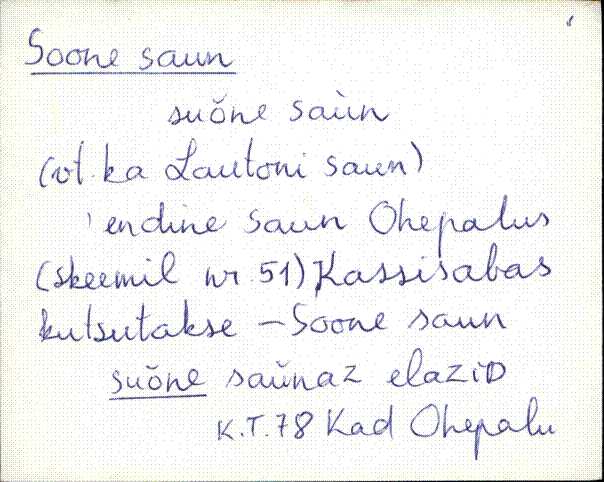 Soone saun
suŏne saùn
(vt. ka Lautoni saun)
'endine saun Ohepalus
(skeemil nr. 51) Kassisabas
kutsutakse – Soone saun
suŏne saŭnaz elaziD
K.T. 78 Kad Ohepalu